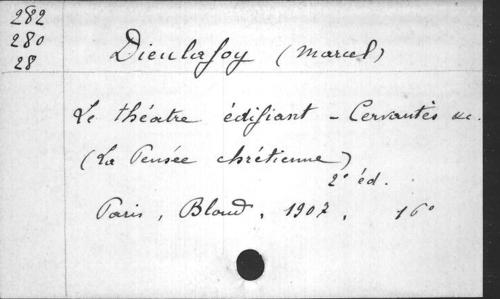 282
280
28
Dieulafoy (Marcel)
Le théatre édifiant - Cervantès &c.
(La Pensée chrétienne)
2e éd.
Paris, Bloud, 1907, 16°